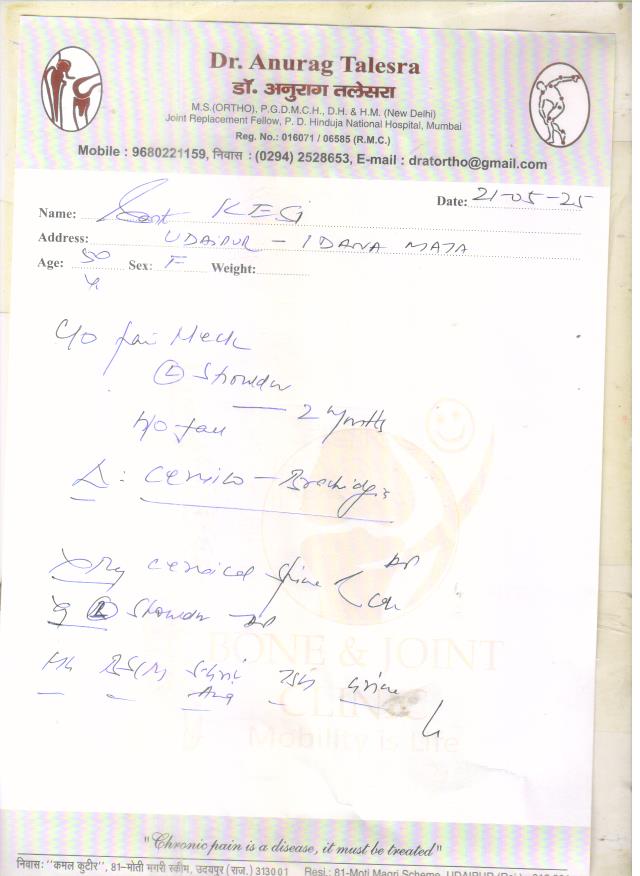 Dr. Anurag Talesra
डॉ. अनुराग तलेसरा
M.S.(ORTHO), P.G.D.M.C.H., D.H. & H.M. (New Delhi)
Joint Replacement Fellow, P. D. Hinduja National Hospital, Mumbai
Reg. No.: 016071 / 06585 (R.M.C.)
Mobile : 9680221159, निवास : (0294) 2528653, E-mail : dratortho@gmail.com
Date: 21-05-25
Name: KESi
Address: UDAIPUR - IDANA MATA
Age: 50 Sex: F Weight:
y
C/O pain Neck
(L) Shoulder
2 months
h/o fall
Δ: Cervico - Brachialgia
Xray cervical spine AP
(L) Shoulder AP
Hb BS(R) S.Uric TSH Urine
BONE & JOINT
CLINIC
Mobility is Life
"Chronic pain is a disease, it must be treated"
निवास: "कमल कुटीर", 81-मोती मगरी स्कीम, उदयपुर (राज.) 313001 Resi.: 81-Moti Magri Scheme, UDAIPUR